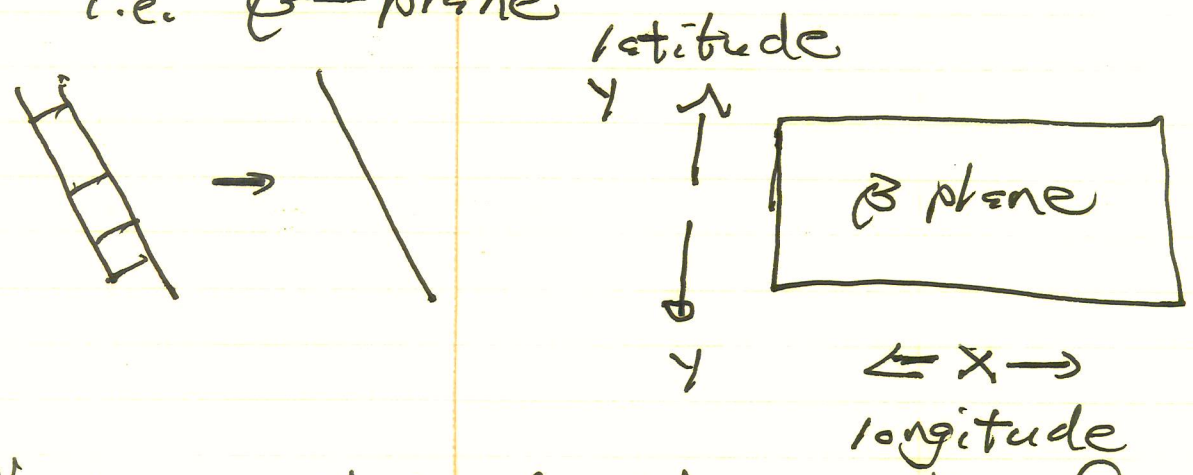 i.e. β-plane
latitude
Y
β plane
Y
← X →
longitude